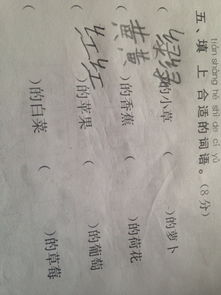 tián shàng hé shì de cí yǔ
五、填上合适的词语。(8分)
(绿绿)的小草 ( )的萝卜
(黄黄)的香蕉 ( )的荷花
(红红)的苹果 ( )的葡萄
( )的白菜 ( )的草莓